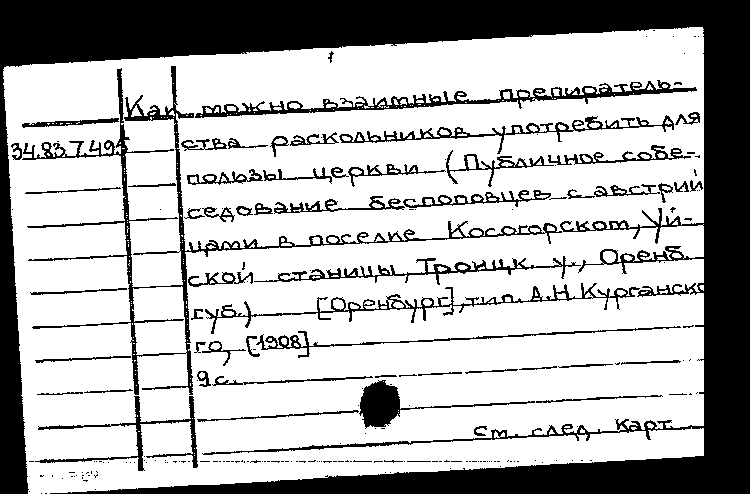 Как можно взаимные препиратель-
34.83.7.495 ства раскольников употребить для
пользы церкви (Публичное собе-
седование беспоповцев с австрий
цами в поселке Косогорском, Уй-
ской станицы, Троицк. у., Оренб.
губ.) [Оренбург], тип. А.Н. Курганско
го, [1908].
9 с.
см. след. карт